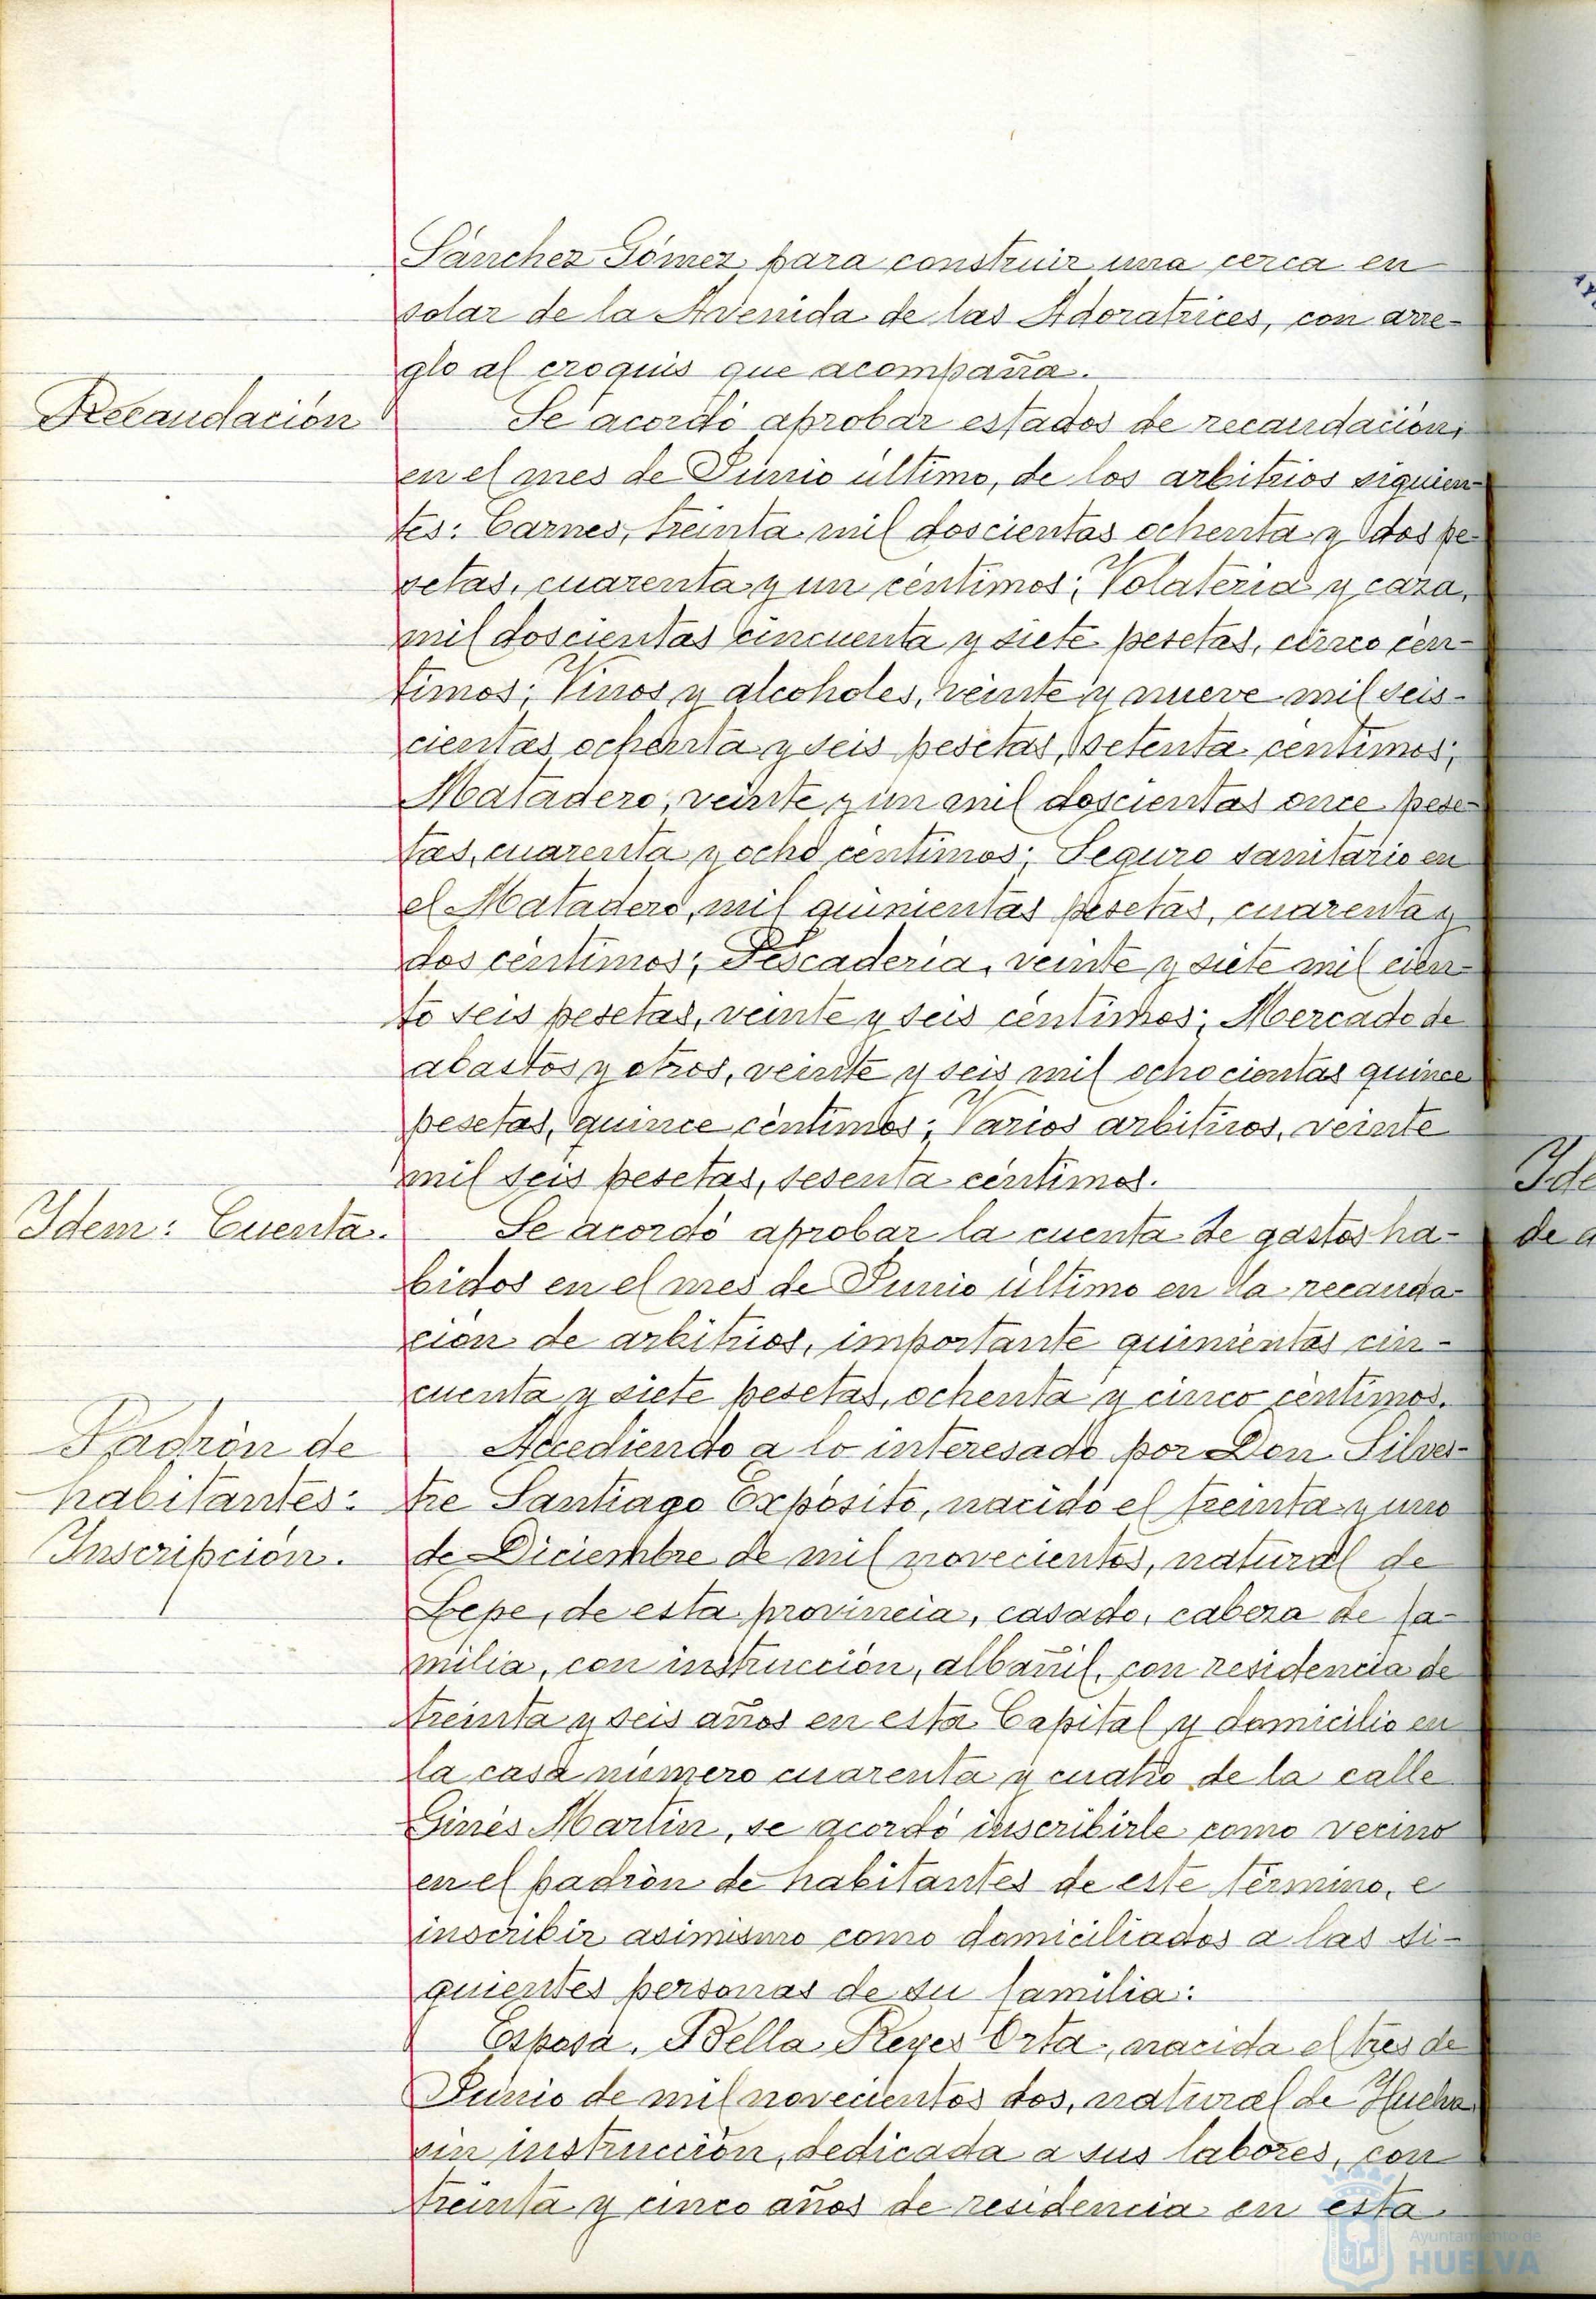 Sánchez Gómez para construir una cerca en
solar de la Avenida de las Adoratrices, con arre-
glo al croquis que acompaña.
Recaudación
Se acordó aprobar estados de recaudación,
en el mes de Junio último, de los arbitrios siguien-
tes: Carnes, treinta mil doscientas ochenta y dos pe-
setas, cuarenta y un céntimos; Volatería y caza,
mil doscientas cincuenta y siete pesetas, cinco cén-
timos; Vinos y alcoholes, veinte y nueve mil seis-
cientas ochenta y seis pesetas, setenta céntimos;
Matadero, veinte y un mil doscientas once pese-
tas, cuarenta y ocho céntimos; Seguro sanitario en
el Matadero, mil quinientas pesetas, cuarenta y
dos céntimos; Pescadería, veinte y siete mil cien-
to seis pesetas, veinte y seis céntimos; Mercado de
abastos y otros, veinte y seis mil ochocientas quince
pesetas, quince céntimos; Varios arbitrios, veinte
mil seis pesetas, sesenta céntimos.
Idem: Cuenta.
Se acordó aprobar la cuenta de gastos ha-
bidos en el mes de Junio último en la recauda-
ción de arbitrios, importante quinientas cin-
cuenta y siete pesetas, ochenta y cinco céntimos.
Padrón de
habitantes:
Inscripción.
Accediendo a lo interesado por Don Silves-
tre Santiago Expósito, nacido el treinta y uno
de Diciembre de mil novecientos, natural de
Lepe, de esta provincia, casado, cabeza de fa-
milia, con instrucción, albañil, con residencia de
treinta y seis años en esta Capital y domicilio en
la casa número cuarenta y cuatro de la calle
Ginés Martín, se acordó inscribirle como vecino
en el padrón de habitantes de este término, e
inscribir asimismo como domiciliados a las si-
guientes personas de su familia:
Esposa, Bella Reyes Orta, nacida el tres de
Junio de mil novecientos dos, natural de Huelva
sin instrucción, dedicada a sus labores, con
treinta y cinco años de residencia en esta
Ide
de a
Ayuntamiento de
HUELVA